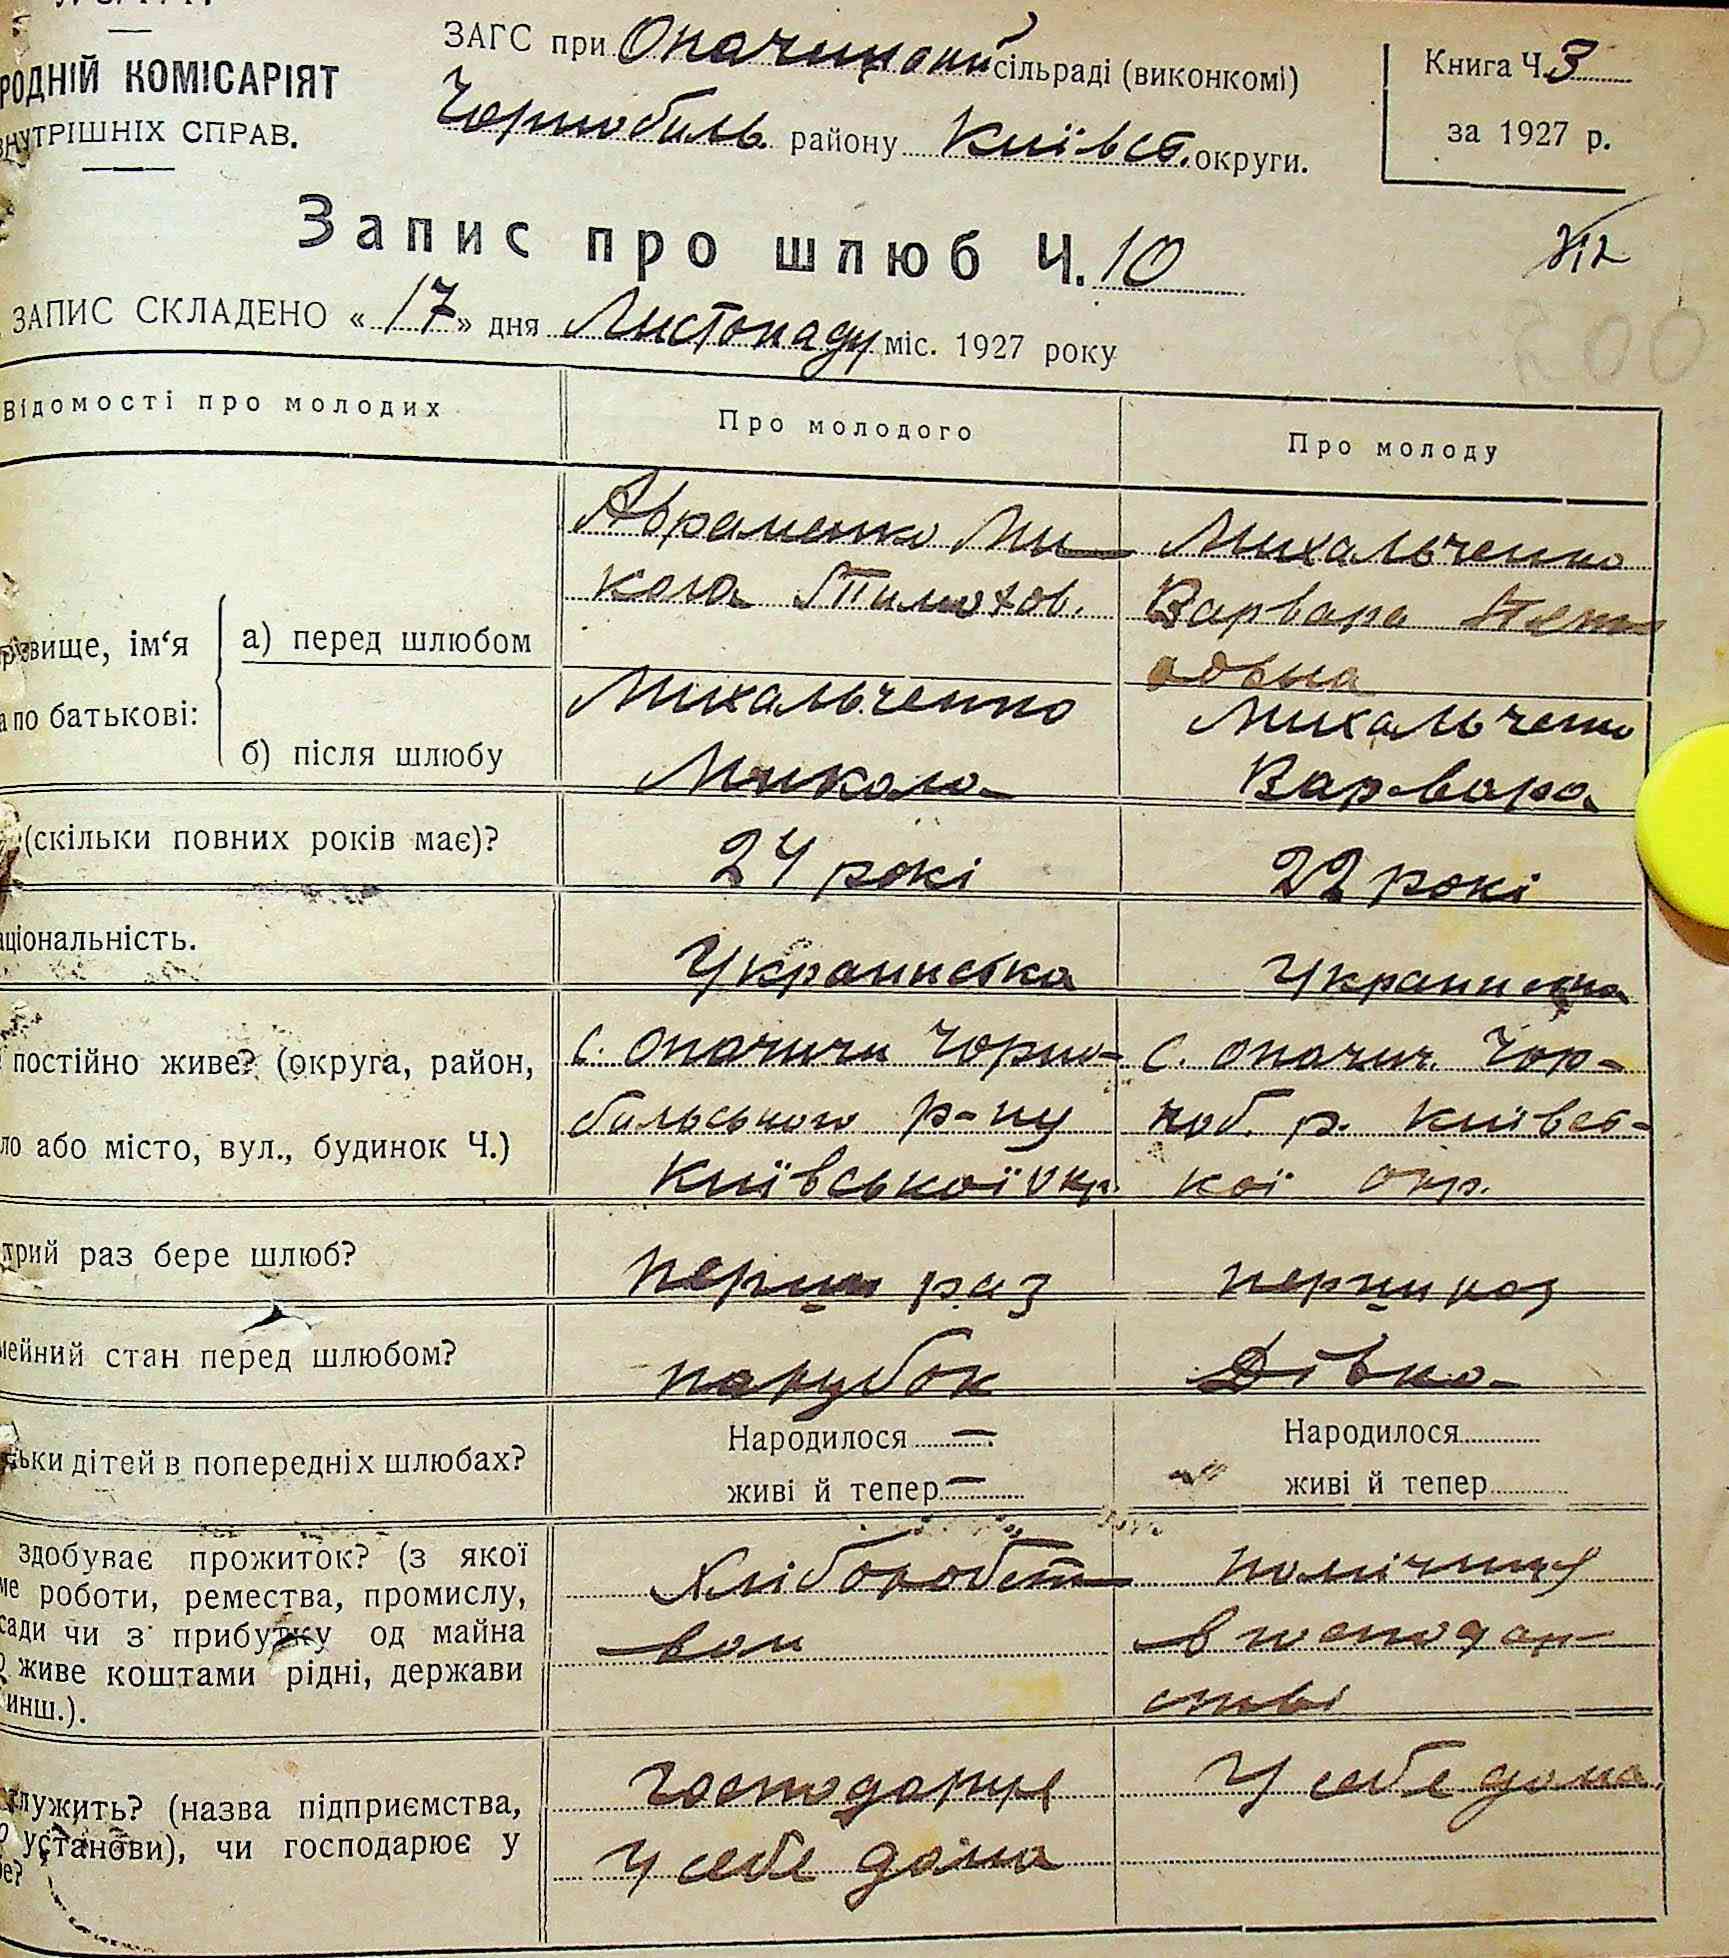 РОДНІЙ КОМІСАРІЯТ
ВНУТРІШНІХ СПРАВ.
ЗАГС при Опачицькій сільраді (виконкомі)
Чорнобиль. району Київсь. округи.
Книга Ч. 3
за 1927 р.
Запис про шлюб Ч. 10
ЗАПИС СКЛАДЕНО « 17 » дня Листопаду міс. 1927 року
Відомості про молодих
Про молодого
Про молоду
різвище, ім‘я
а по батькові:
а) перед шлюбом
Авраменко Ми
кола Тимохов.
Михальченко
Варвара
б) після шлюбу
Михальченко
Микола
Михальченко
Варвара
(скільки повних років має)?
24 рокі
22 рокі
аціональність.
Украинська
постійно живе? (округа, район,
ло або місто, вул., будинок Ч.)
с. Опачичи Чорно-
бильського р-ну
Київської окр.
с. Опачич. Чор-
ноб. р. Київсь-
кої окр.
трий раз бере шлюб?
перши раз
перши раз
мейний стан перед шлюбом?
парубок
Дівка
льки дітей в попередніх шлюбах?
Народилося —
живі й тепер —
Народилося
живі й тепер
здобуває прожиток? (з якої
ме роботи, ремества, промислу,
сади чи з прибутку од майна
о живе коштами рідні, держави
инш.).
Хліборобст
вом
помічниця
в господар
стві
служить? (назва підприємства,
о установи), чи господарює у
бе?
господарює
У себе дома
У себе дома